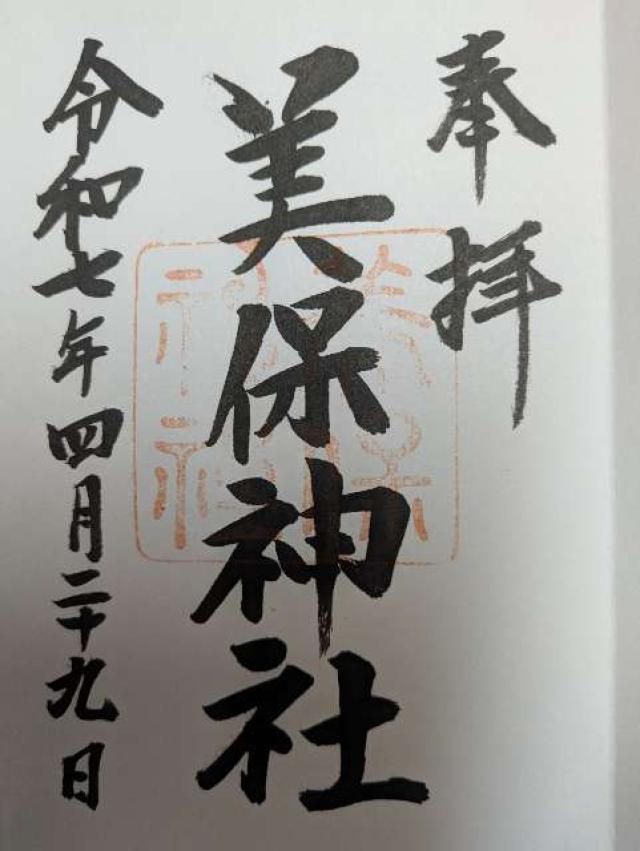 奉拝
美保神社
令和七年四月二十九日